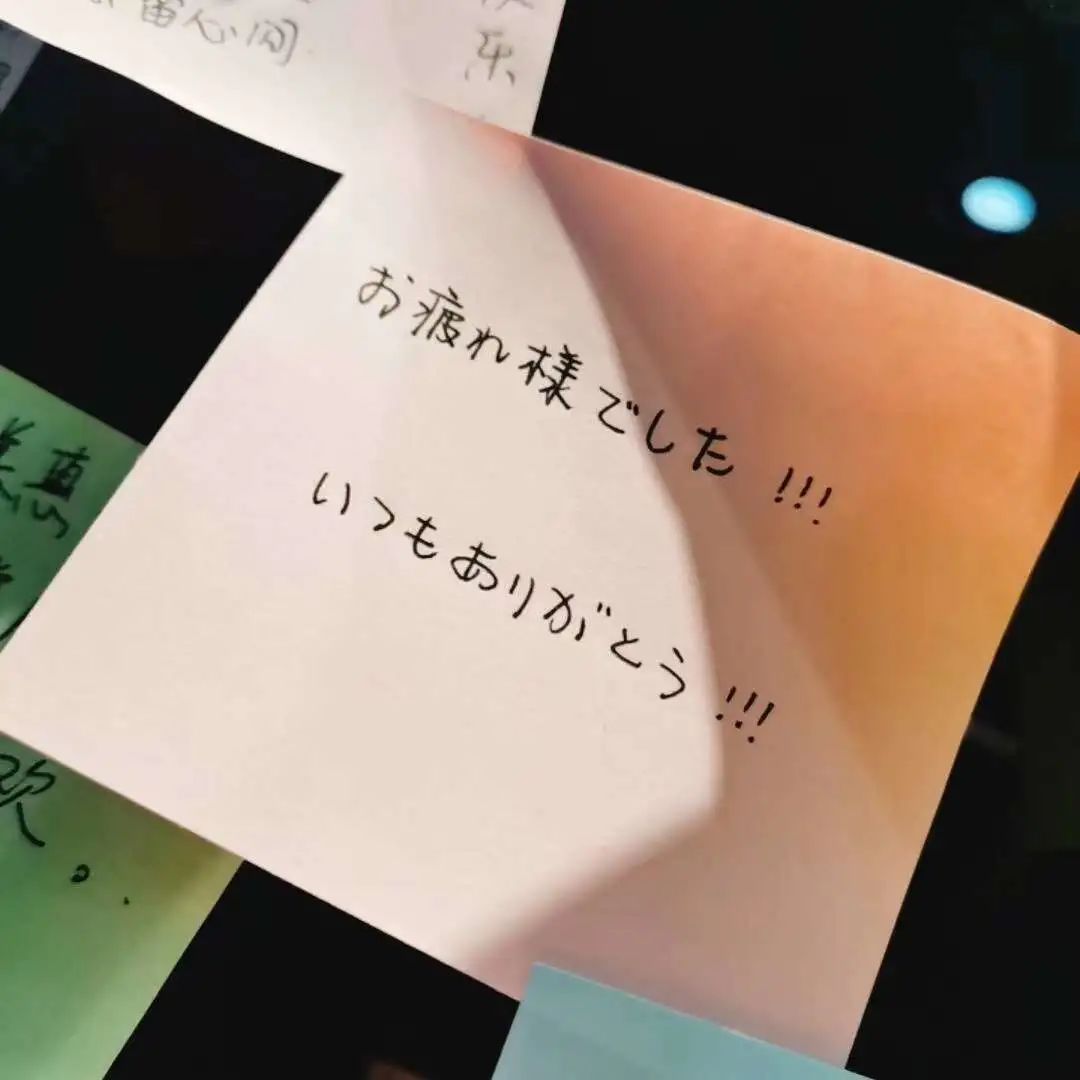 留心间
乐
お疲れ様でした!!!
いつもありがとう!!!
欢。